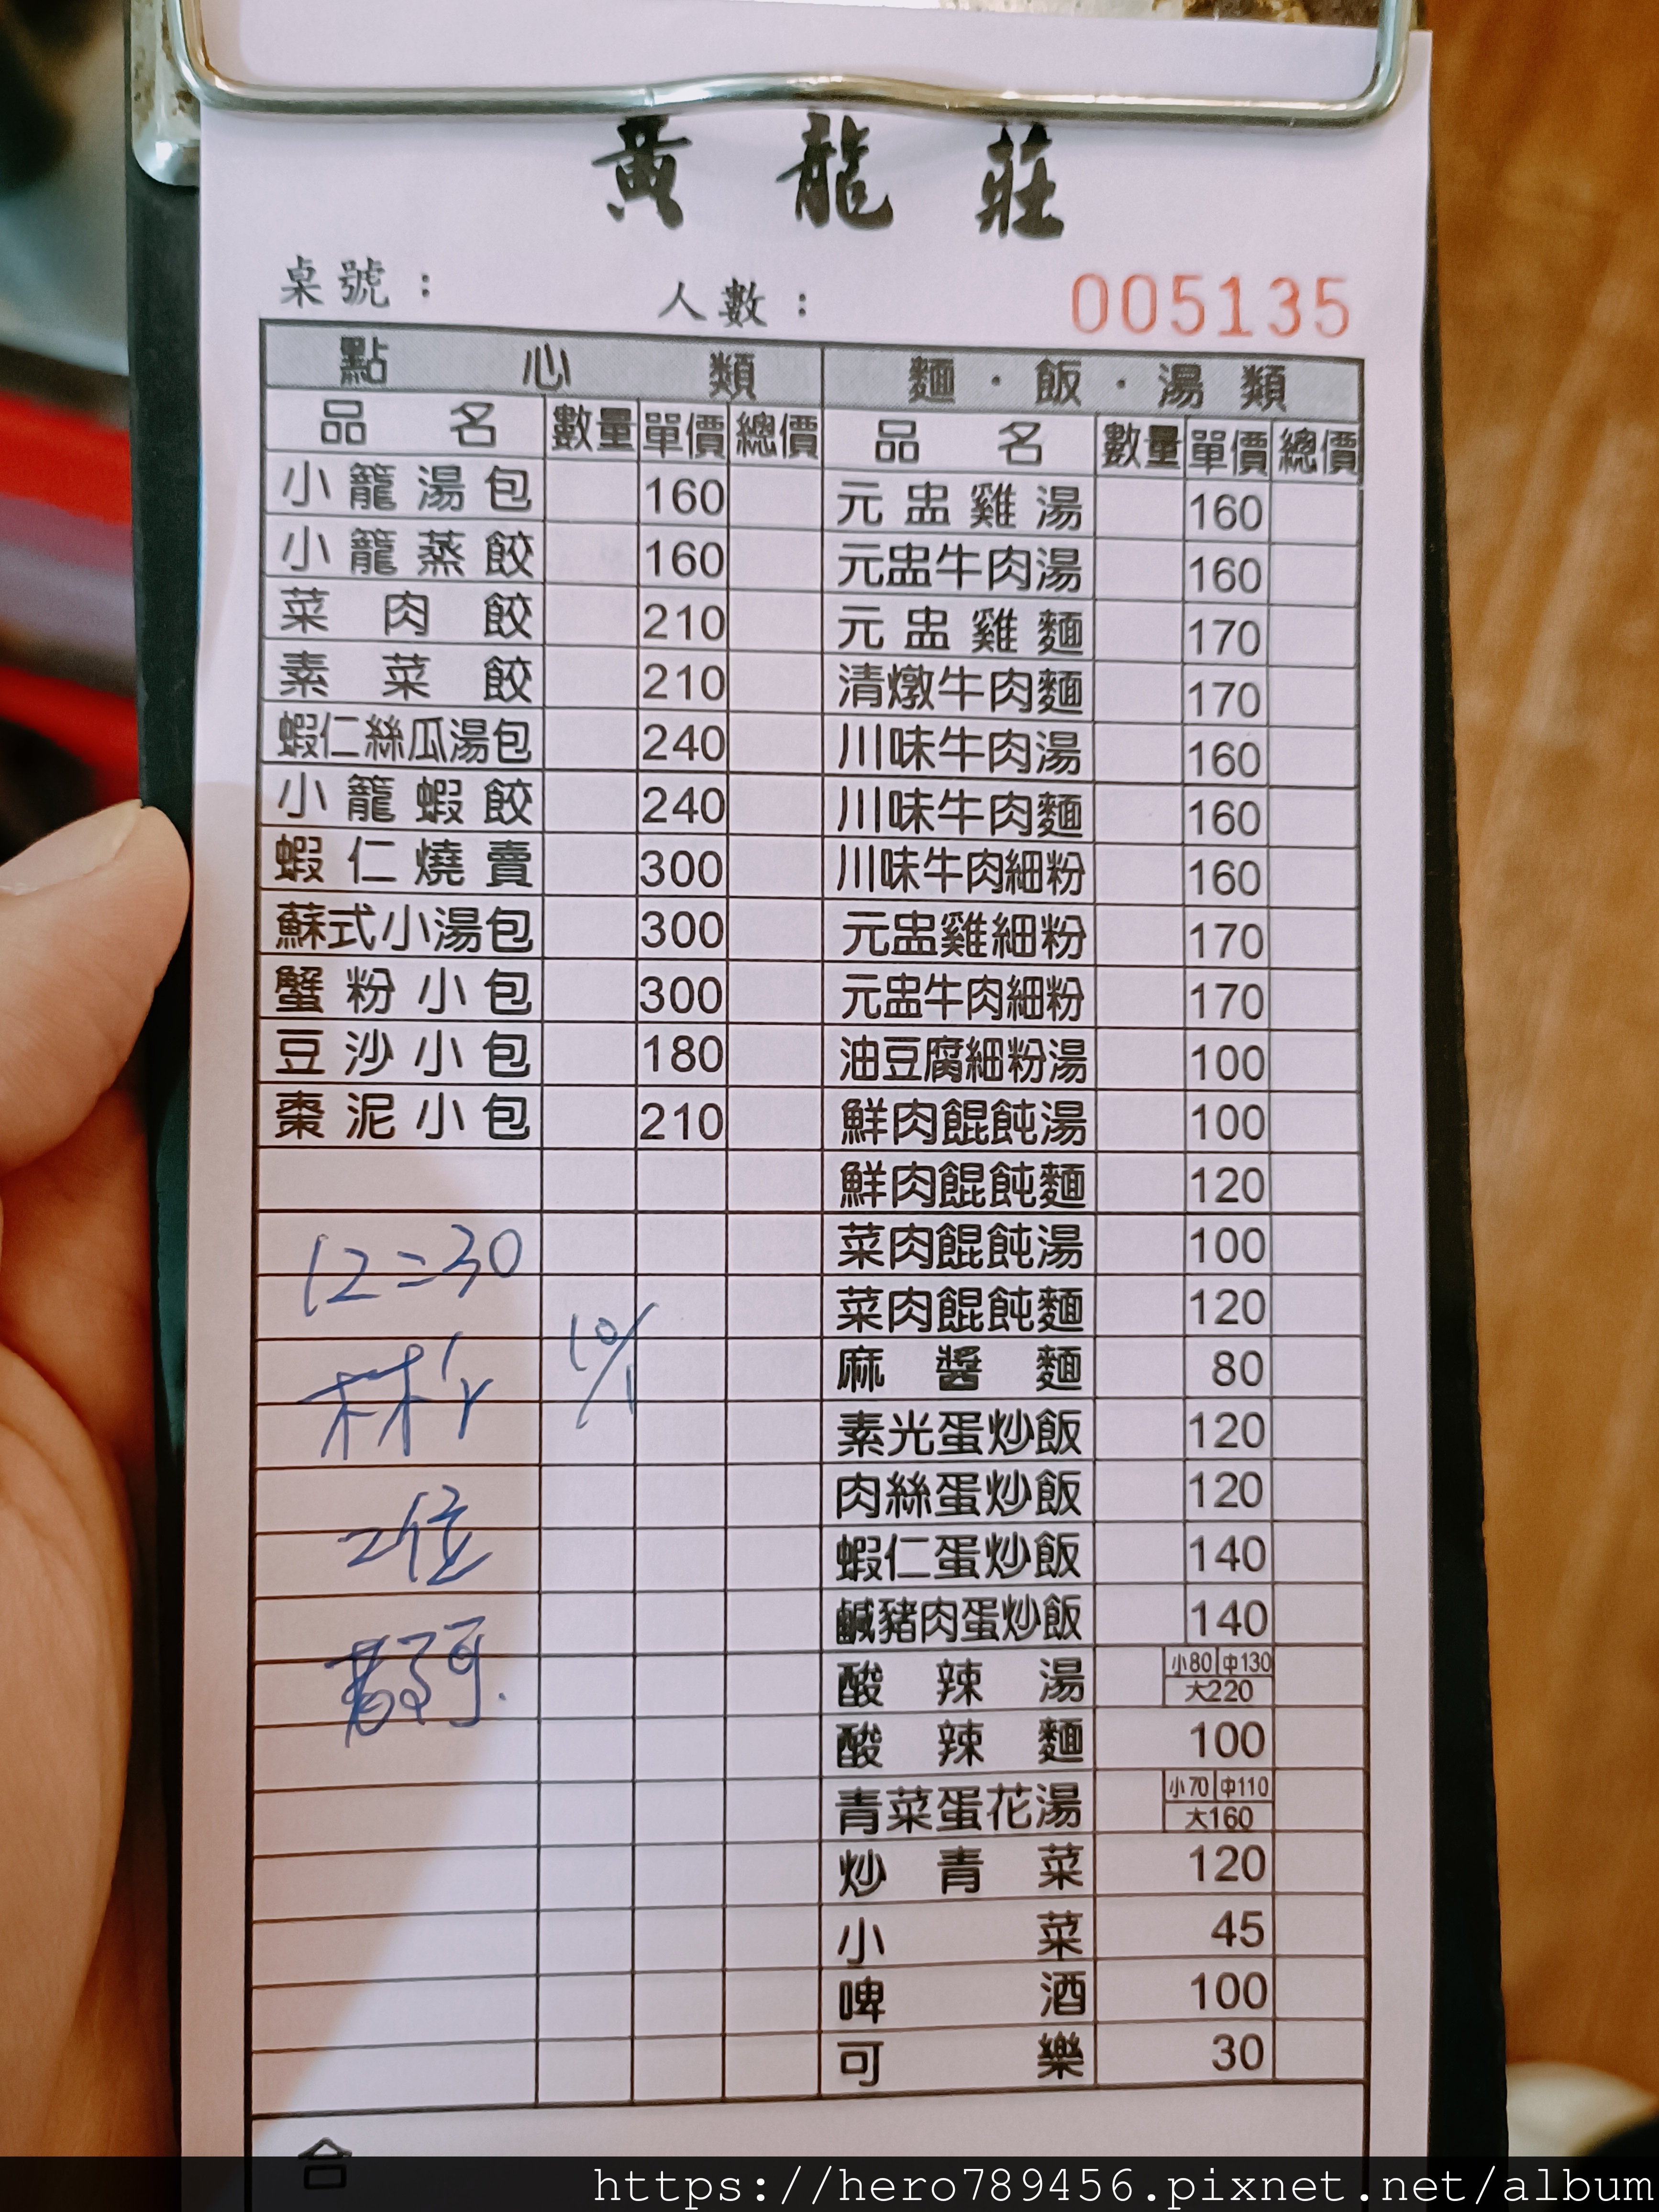 黃龍莊
桌號：
人數：
005135
點心類
品名 數量 單價 總價
小籠湯包 160
小籠蒸餃 160
菜肉餃 210
素菜餃 210
蝦仁絲瓜湯包 240
小籠蝦餃 240
蝦仁燒賣 300
蘇式小湯包 300
蟹粉小包 300
豆沙小包 180
棗泥小包 210
12=30
10/1
林's
2位
麵·飯·湯類
品名 數量 單價 總價
元盅雞湯 160
元盅牛肉湯 160
元盅雞麵 170
清燉牛肉麵 170
川味牛肉湯 160
川味牛肉麵 160
川味牛肉細粉 160
元盅雞細粉 170
元盅牛肉細粉 170
油豆腐細粉湯 100
鮮肉餛飩湯 100
鮮肉餛飩麵 120
菜肉餛飩湯 100
菜肉餛飩麵 120
麻醬麵 80
素光蛋炒飯 120
肉絲蛋炒飯 120
蝦仁蛋炒飯 140
鹹豬肉蛋炒飯 140
酸辣湯 小80 中130
大220
酸辣麵 100
青菜蛋花湯 小70 中110
大160
炒青菜 120
小菜 45
啤酒 100
可樂 30
合
https://hero789456.pixnet.net/album